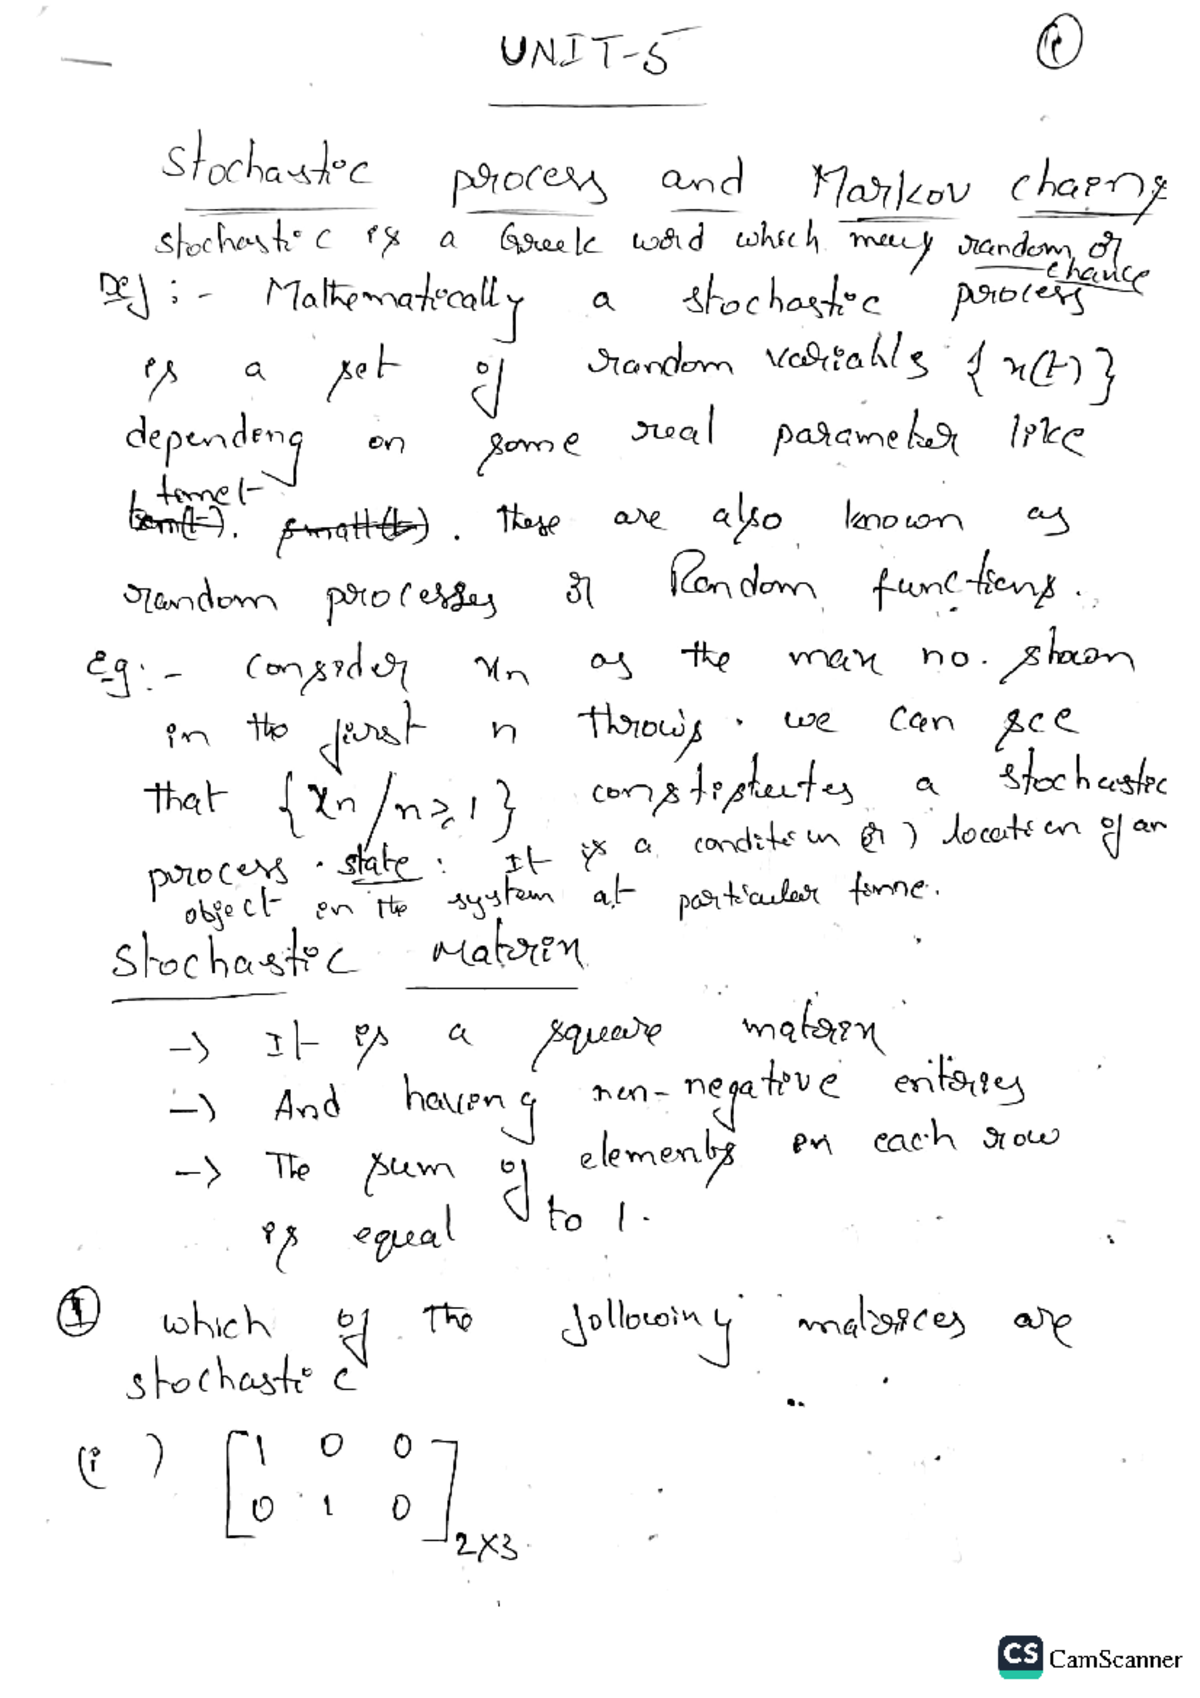 UNIT-5
1
Stochastic process and Markov chains
stochastic is a Greek word which means random or
chance
Def :- Mathematically a stochastic process
is a set of random variables { x(t) }
depending on some real parameter like
time t
. these are also known as
random processes or Random functions.
Eg:- Consider xn as the max no. shown
in the first n throws. we can see
that { xn / n ≥ 1 } constitutes a stochastic
process. state : It is a condition (or) location of an
object in the system at particular time.
Stochastic Matrix
-> It is a square matrix
-> And having non-negative entries
-> The sum of elements in each row
is equal to 1.
① which of the following matrices are
stochastic
(i) [ 1 0 0
0 1 0 ] 2x3
CS CamScanner